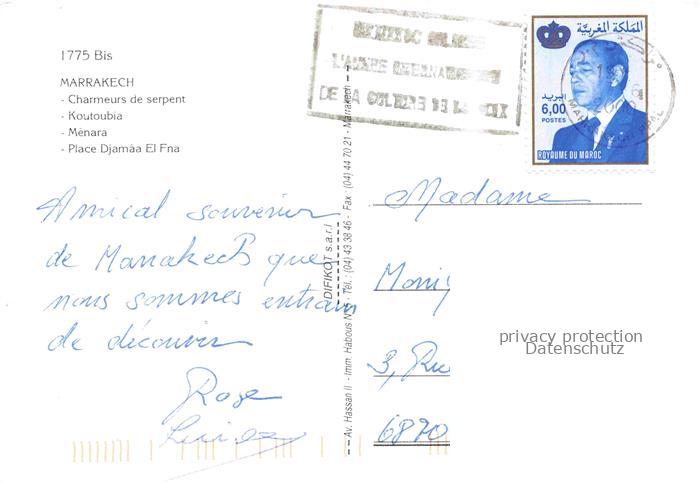 1775 Bis
MARRAKECH
- Charmeurs de serpent
- Koutoubia
- Ménara
- Place Djamâa El Fna
Amical souvenir
de Marrakech que
nous sommes entrain
de découvrir
Rose
DE LA CULTURE DE LA PAIX
المملكة المغربية
البريد
6,00
POSTES
ROYAUME DU MAROC
DIFIKOT s.a.r.l
Av. Hassan II - Imm. Habous N° 5 - Tél.: (04) 43 38 46 - Fax : (04) 44 70 21 - Marrakech
Madame
3, Rue
6870
privacy protection
Datenschutz